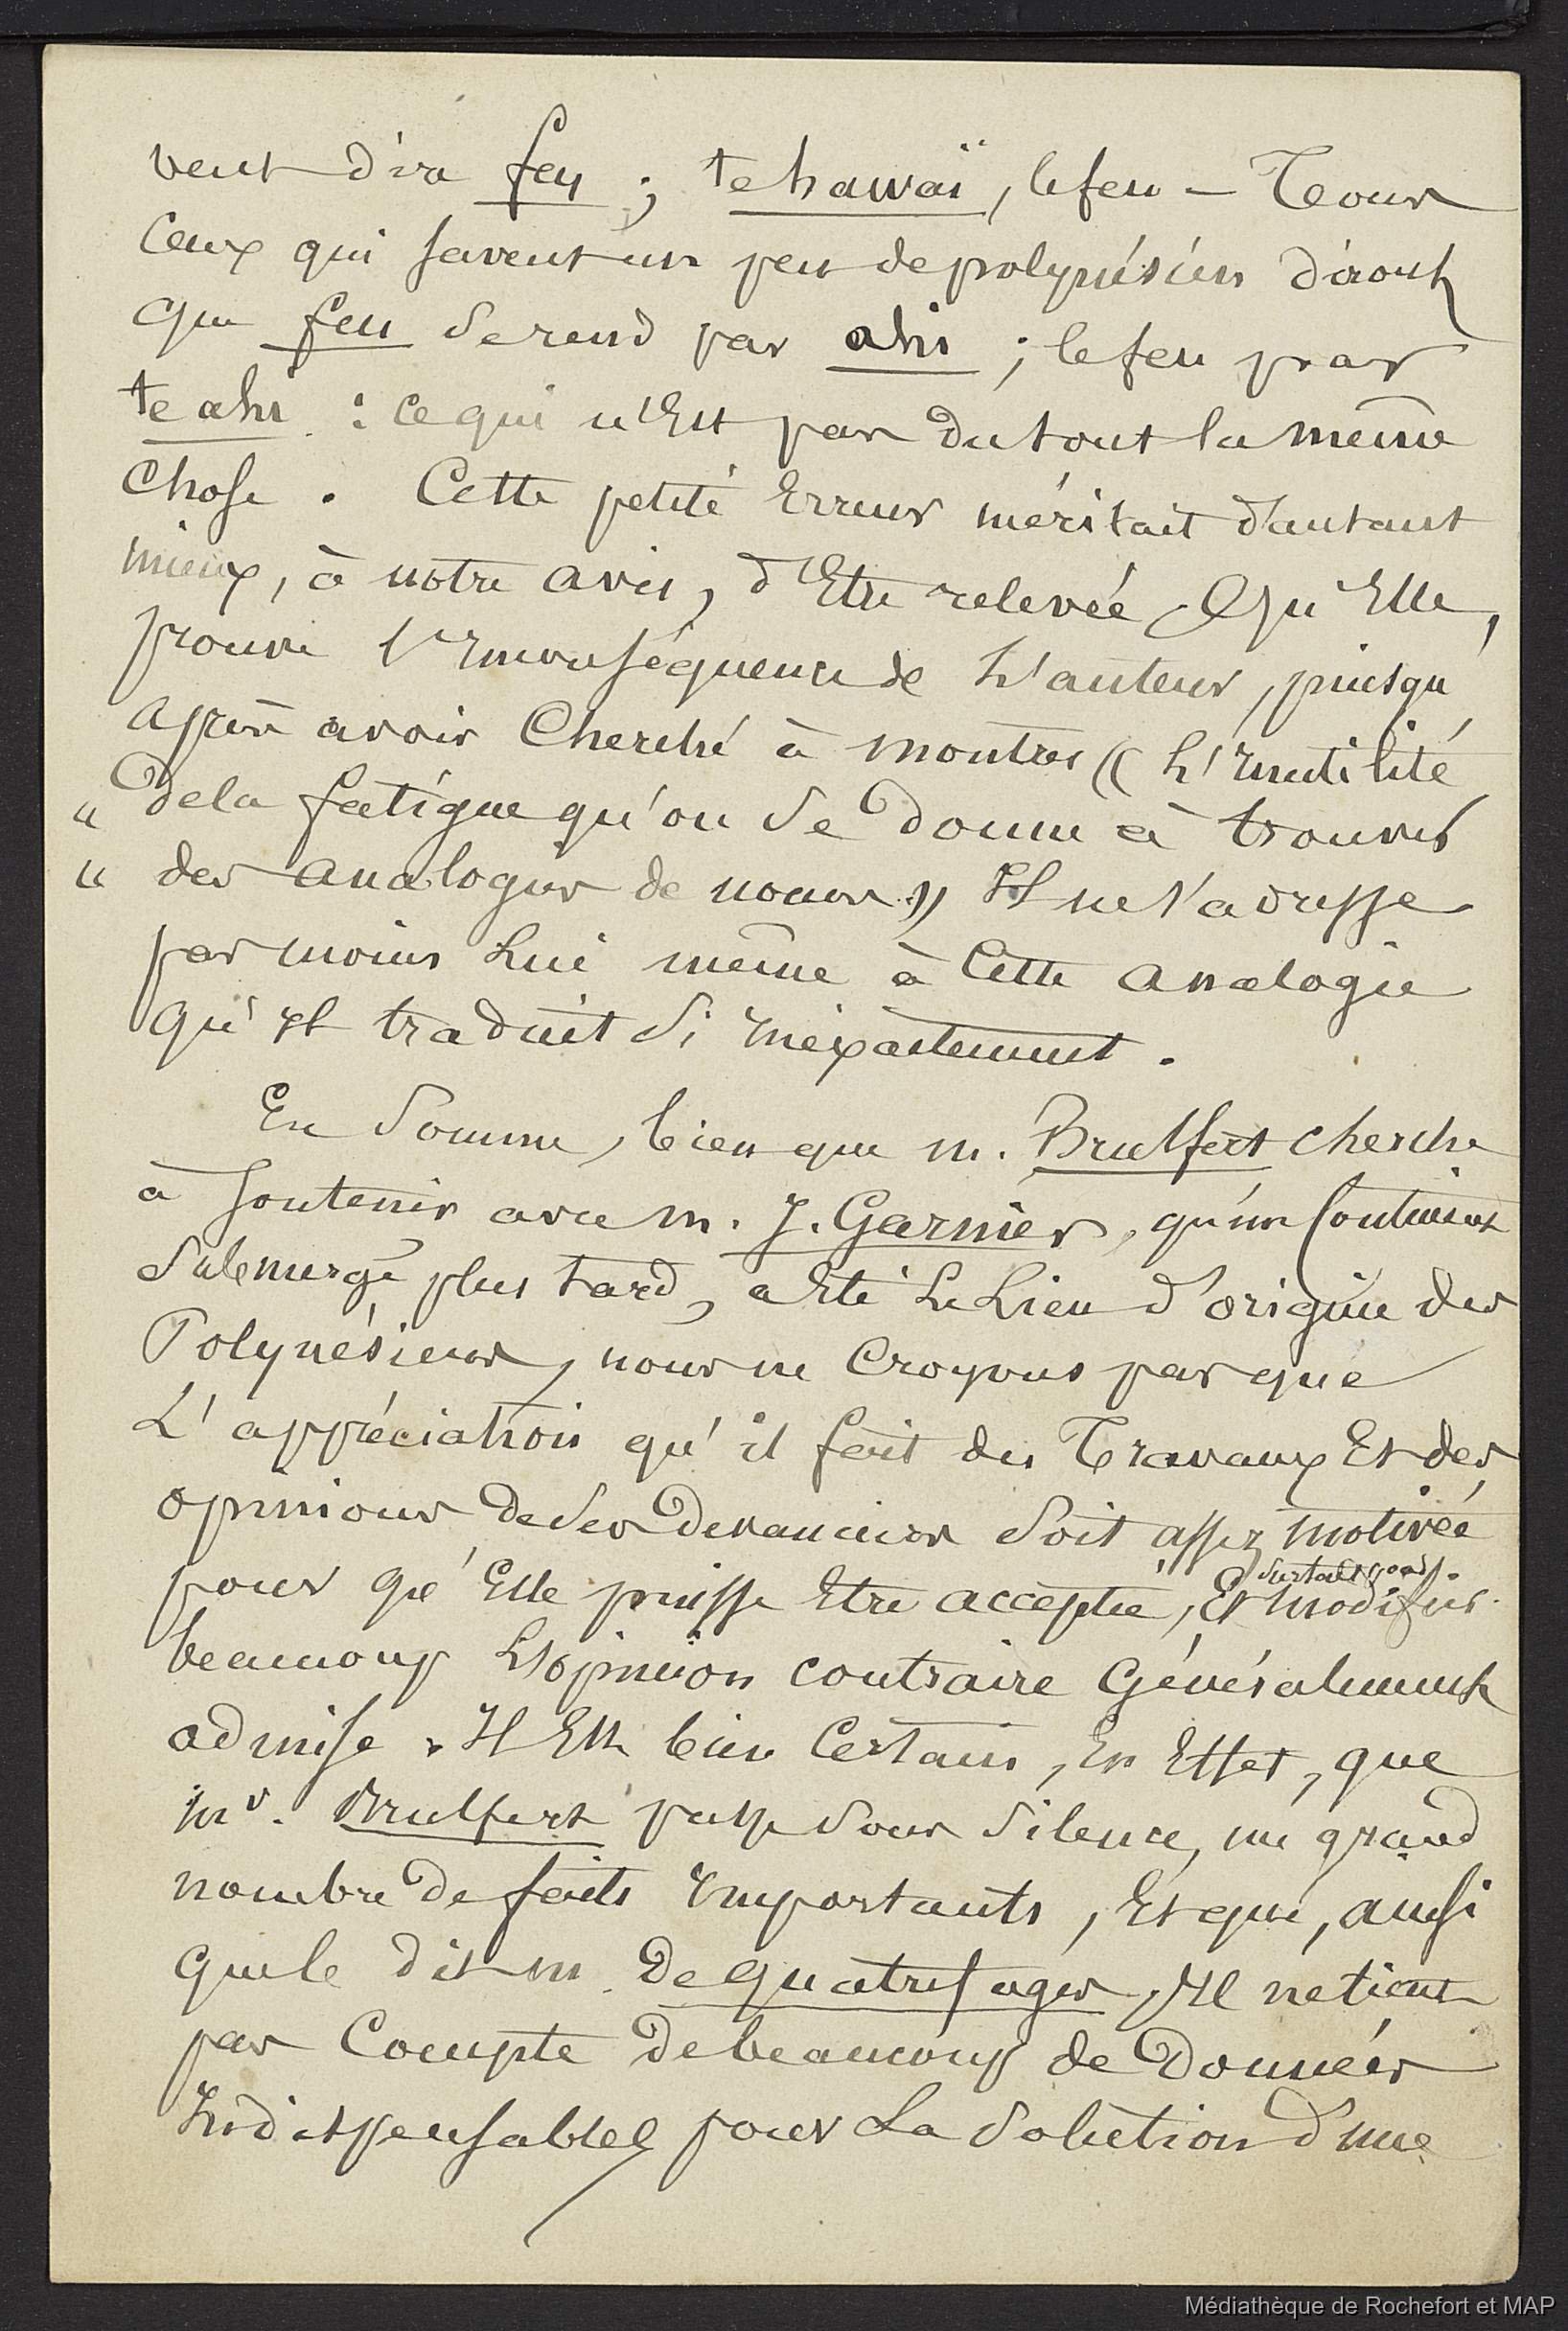 veut dire feu ; te hawaï, le feu – Tous
Ceux qui savent un peu de polynésien diront
que feu se rend par ahi ; le feu par
te ahi : ce qui n'Est pas du tout la même
Chose . Cette petite Erreur méritait d'autant
mieux, à notre avis, d'Etre relevée Qu'Elle,
prouve l'Inconséquence de L'auteur, puisqu'
après avoir Cherché à montrer (( L'Inutilité
" de la fatigue qu'on se donne à trouver
" des analogies de noms )) Il ne s'adresse
pas moins Lui même à Cette analogie
qu'Il traduit si Inexactement .
En Somme, bien que m. Brulfert cherche
à soutenir avec m. J. Garnier, qu'un Continent
submergé plus tard, a Eté Le Lieu d'origine des
Polynésiens, nous ne Croyons pas que
L'appréciation qu'il fait des Travaux Et des
opinions de ses devanciers soit assez motivée
pour qu'Elle puisse Etre acceptée, Et modifier
beaucoup L'opinion contraire Généralement
admise . Il Est bien Certain, En Effet, que
mr. Brulfert passe sous silence, un grand
nombre de faits Importants, Et que, ainsi
que le dit m. De Quatrefages, Il ne tient
pas Compte de beaucoup de Données
Indispensables pour La Solution d'une
Médiathèque de Rochefort et MAP